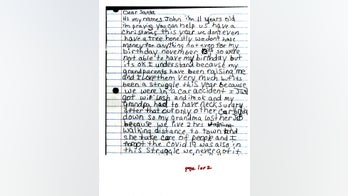 Dear Santa
Hi my names John im 11 years old
im praying you can help us have a
christmas this year we dont even
have a tree honestly we dont have
money for anything not even for my
birthday november so were
not able to have my birthday but
its ok I understand because my
grandparents have been raising me
and I love them very much but its
been a struggle this year because
we were in a car accident
got wip lash and took and my
grandpa had to have neck surgery
after that our only other car
down so my grandma lost her Job
because we live 2 hrs
walking distance to town and
she take care of people and I
the covid 19 was also in
this struggle we never got it
page 1 or 2